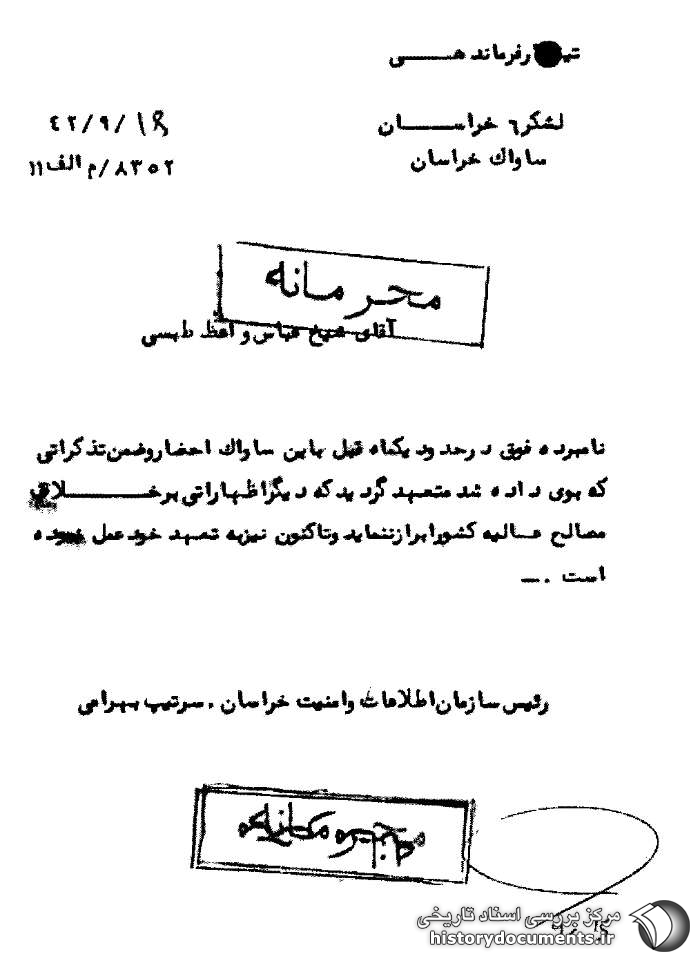 تیمسار فرماندهی
لشکر ٦ خراسان
ساواک خراسان
٤٢/٩/١٨
٨٣٥٢/م الف ١١
محرمانه
آقای شیخ عباس واعظ طبسی
نامبرده فوق در حدود یکماه قبل باین ساواک احضار و ضمن تذکراتی
که بوی داده شد متعهد گردید که دیگر اظهاراتی بر خلاف
مصالح عالیه کشور ابراز ننماید و تاکنون نیز به تعهد خود عمل نموده
است .ـ
رئیس سازمان اطلاعات و امنیت خراسان . سرتیپ بهرامی
مرکز بررسی اسناد تاریخی
historydocuments.ir